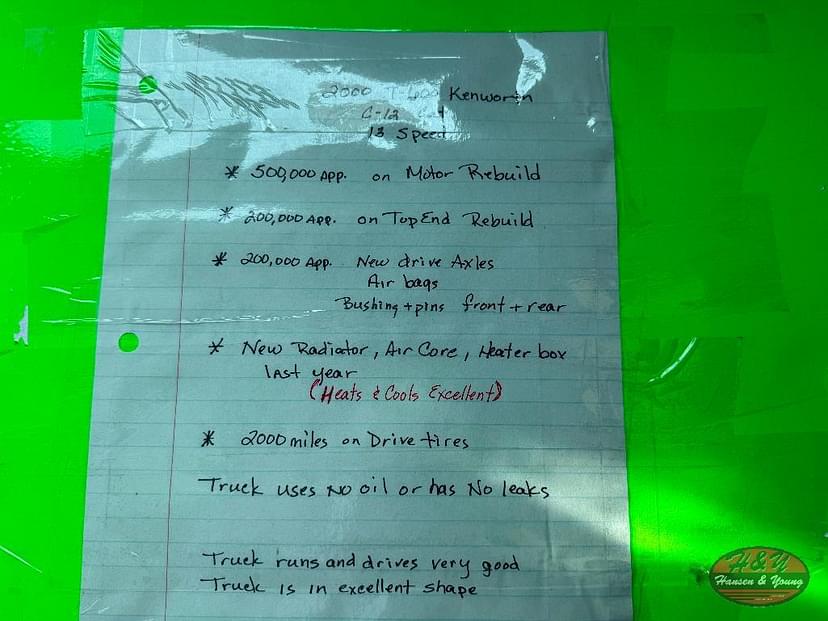 2000 T-600 Kenworth
C-12 Cat
13 Speed
* 500,000 App. on Motor Rebuild
* 200,000 App. on Top End Rebuild
* 200,000 App. New drive Axles
Air bags
Bushing + pins front + rear
* New Radiator, Air Core, Heater box
last year
(Heats & Cools Excellent)
* 2000 miles on Drive tires
Truck uses NO oil or has No leaks
Truck runs and drives very good
Truck is in excellent shape
H&Y
Hansen & Young